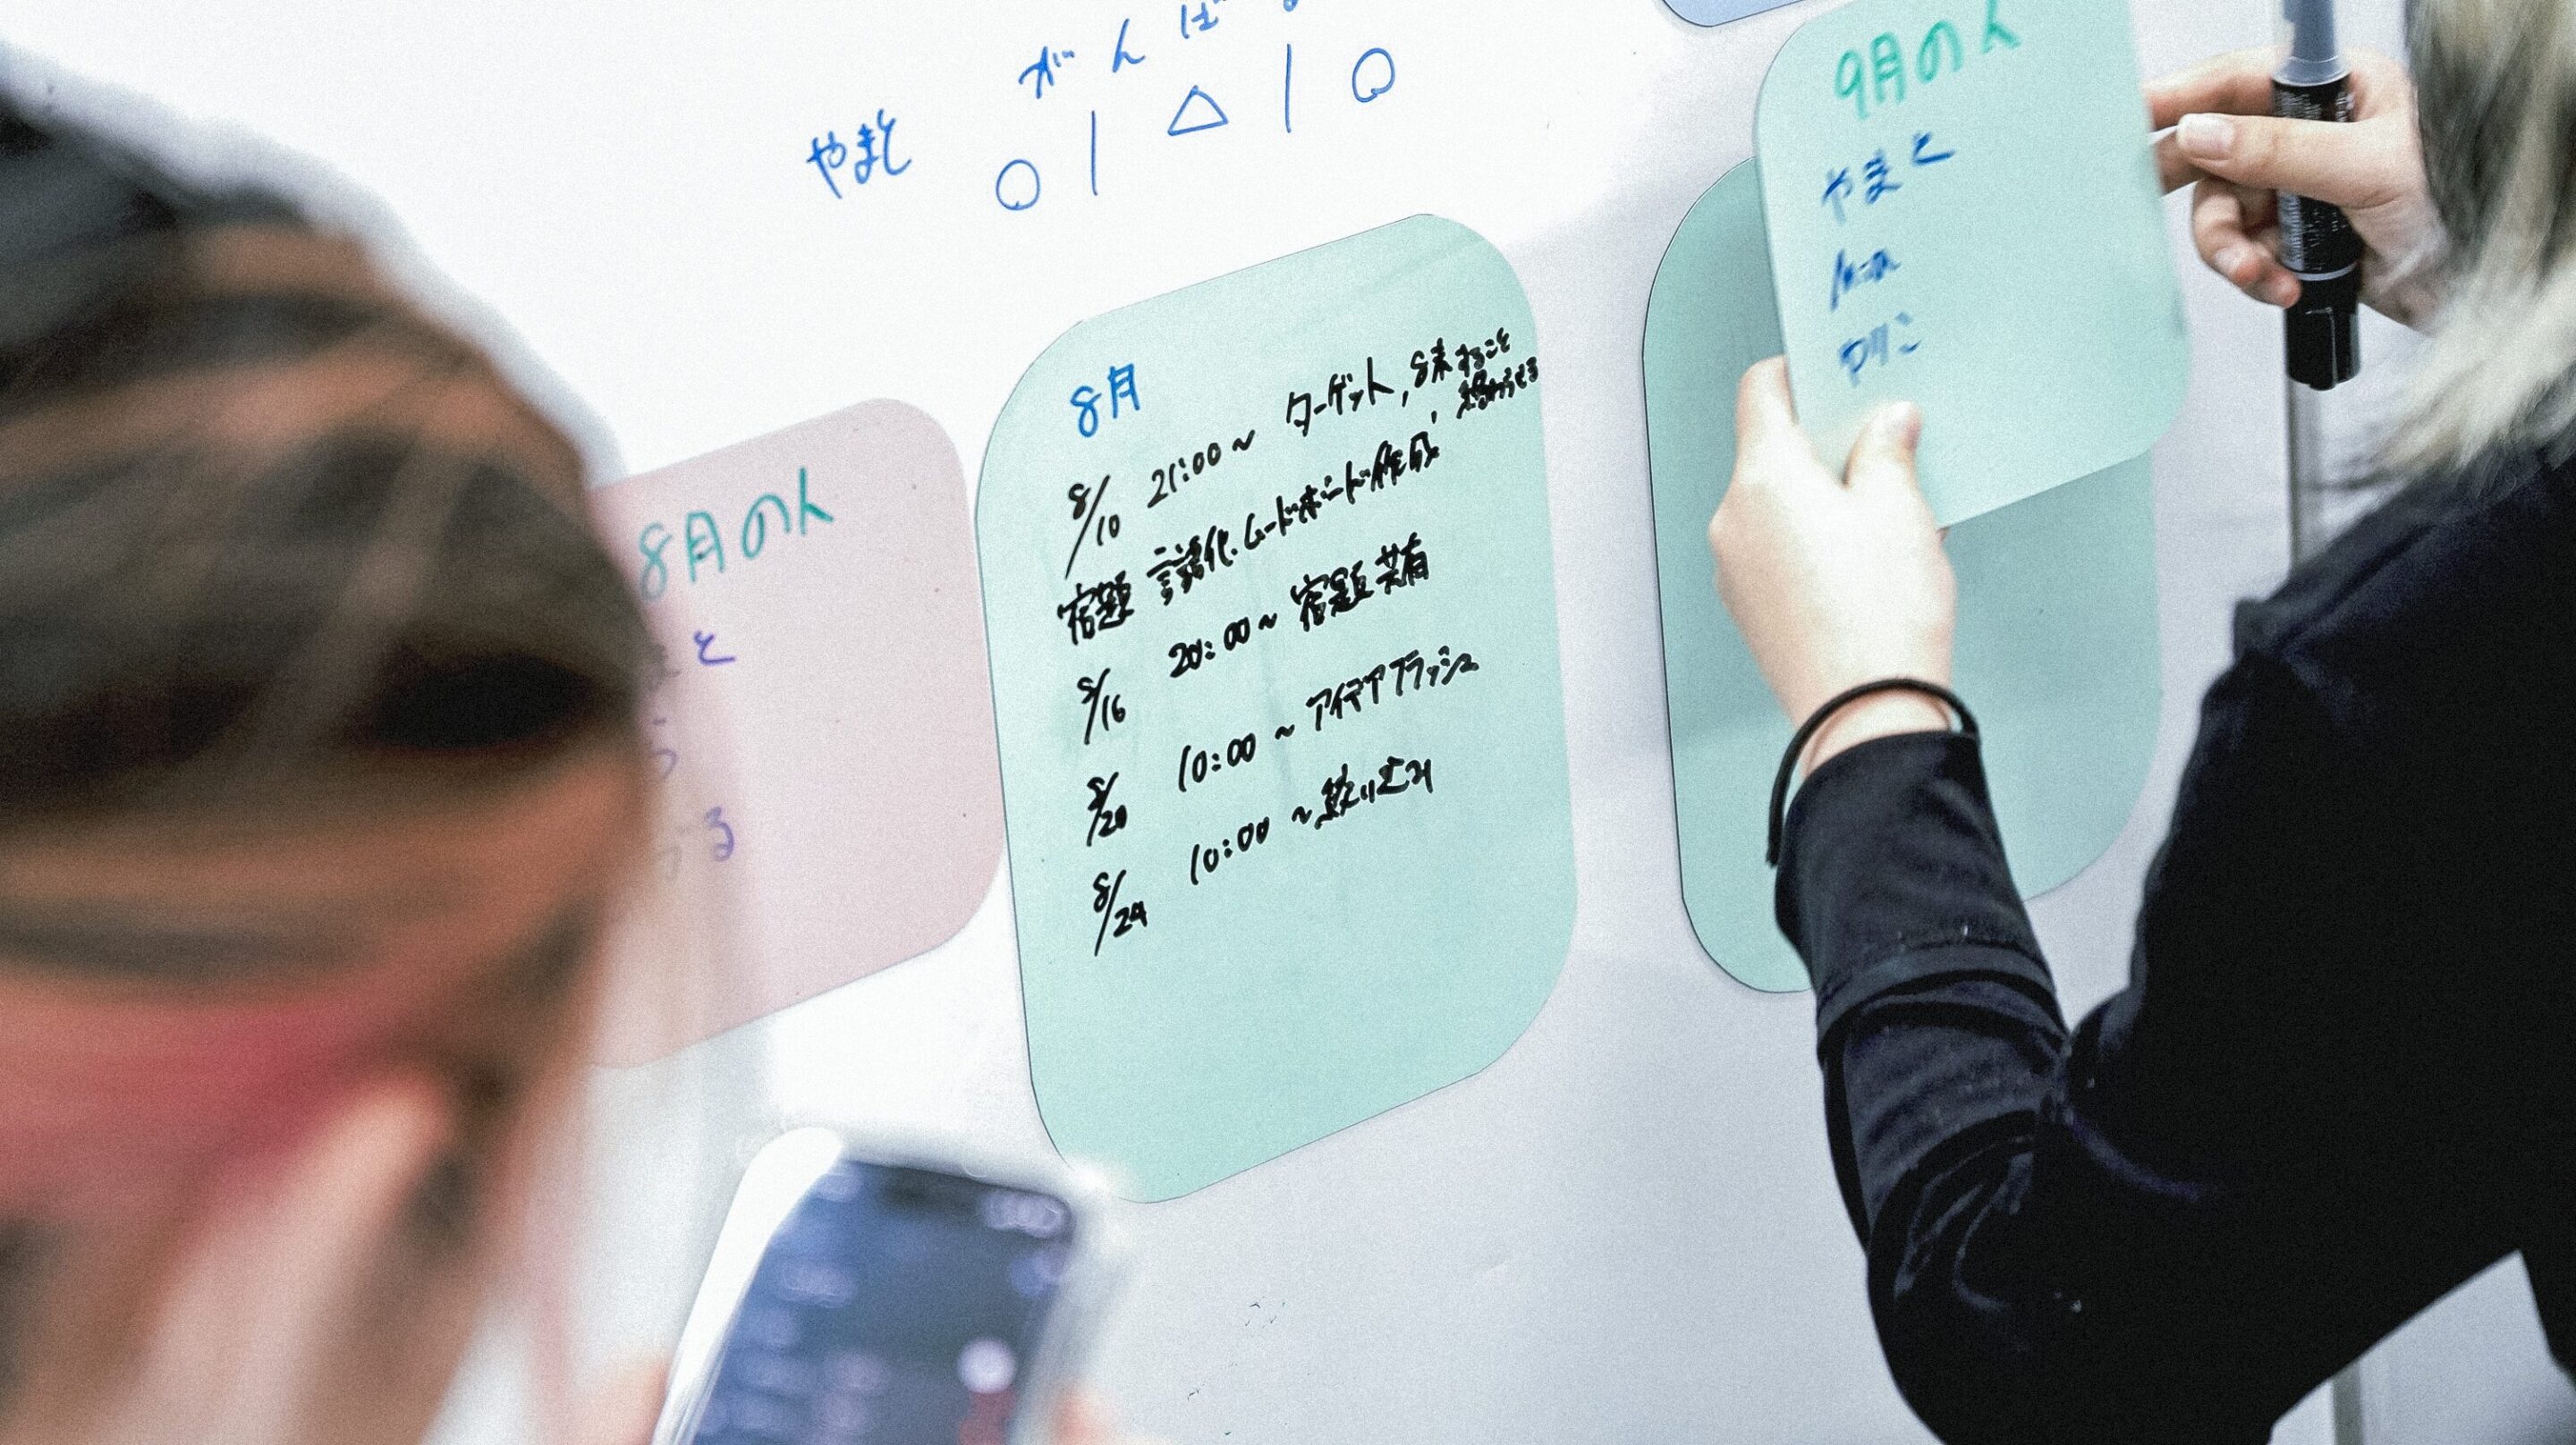 がんば
やまと ○ | △ | ○
8月
8/10 21:00~ ターゲット, 8末すること
終わらせる
宿題 言語化. ムードボード作成
8/16 20:00~ 宿題共有
8/20 10:00~ アイデアブラッシュ
8/24 10:00~
8月の人
と
る
9月の人
やまと